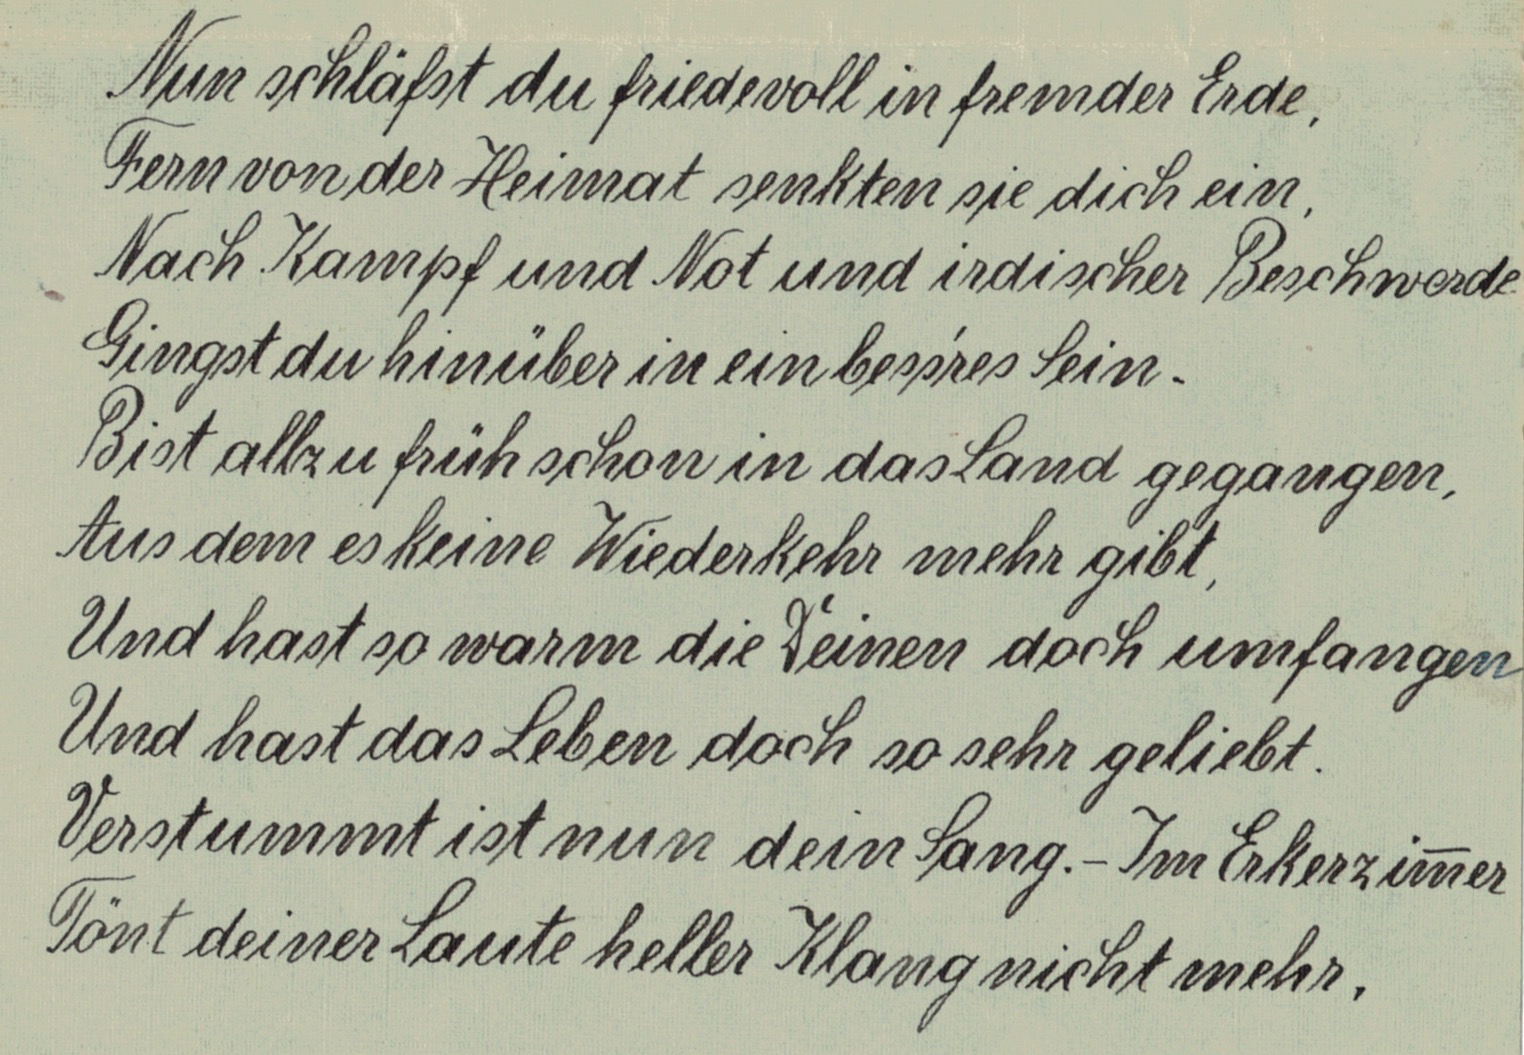 Nun schläfst du friedevoll in fremder Erde,
Fern von der Heimat senkten sie dich ein,
Nach Kampf und Not und irdischer Beschwerde
Gingst du hinüber in ein bess'res Sein.
Bist allzu früh schon in das Land gegangen,
Aus dem es keine Wiederkehr mehr gibt,
Und hast so warm die Deinen doch umfangen
Und hast das Leben doch so sehr geliebt.
Verstummt ist nun dein Sang. – Im Erkerzim̅er
Tönt deiner Laute heller Klang nicht mehr,